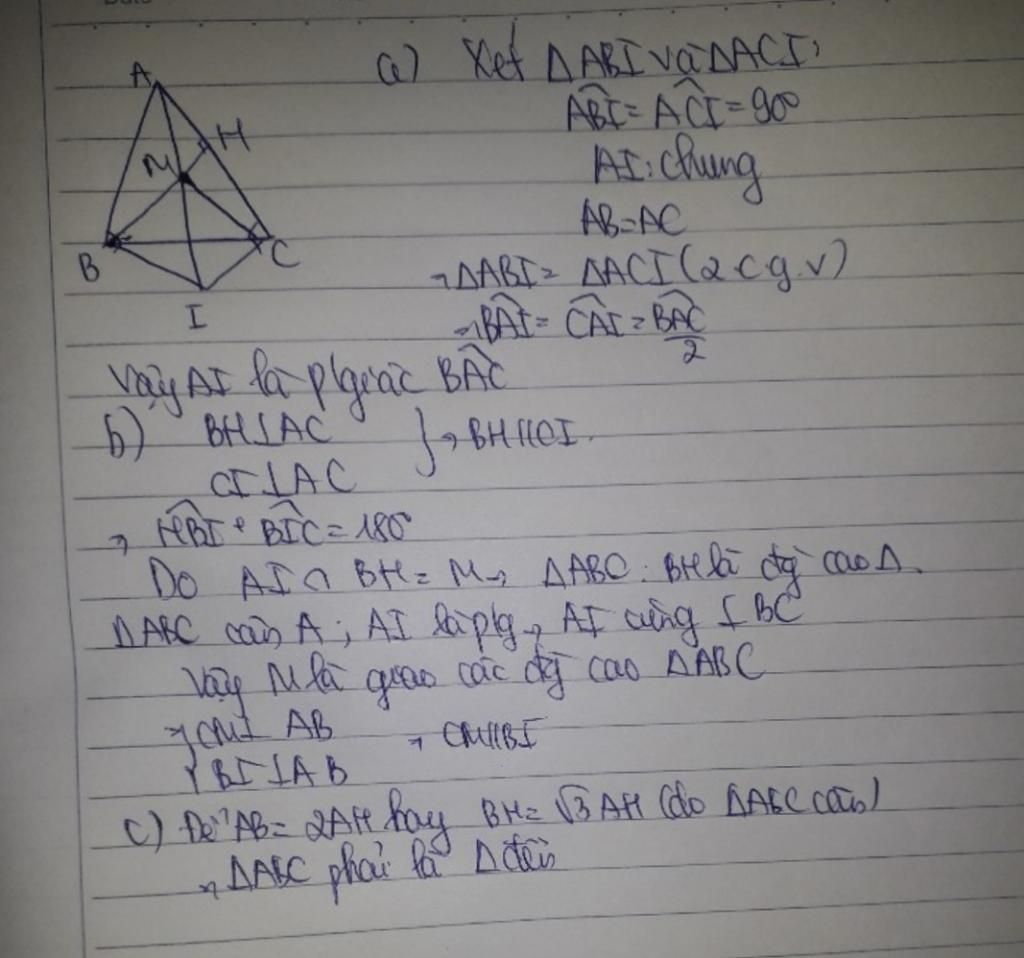 A
H
M
B
C
I
a) Xét ΔABI và ΔACI:
ABI = ACI = 90°
AI: chung
AB = AC
→ ΔABI = ΔACI (2.c.g.v)
→ BAI = CAI = BAC/2
Vậy AI là p/giác BAC
b) BH ⊥ AC } → BH // CI.
CI ⊥ AC
→ HBI + BIC = 180°
Do AI ∩ BH = M → ΔABC: BH là đg cao Δ.
ΔABC cân A; AI là p/g → AI cũng ⊥ BC
Vậy M là giao các đg cao ΔABC
→ { CM ⊥ AB → CM // BI
BI ⊥ AB
c) Để AB = 2AH hay BH = √3 AH (do ΔABC cân)
→ ΔABC phải là Δ đều